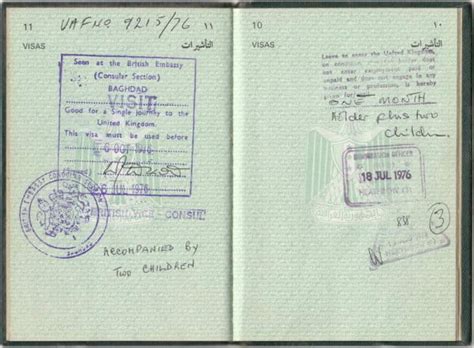 11
VAF No 9215/76
١١
VISAS
التأشيرات
Seen at the British Embassy
(Consular Section)
BAGHDAD
VISIT
Good for a Single journey to the
United Kingdom.
This visa must be used before
6 OCT 1976
JUL 1976
BRITISH VICE - CONSUL
ACCOMPANIED BY
TWO CHILDREN
10
١٠
VISAS
التأشيرات
Leave to enter the United Kingdom,
on condition that the holder does
not enter employment paid or
unpaid and does not engage in any
business or profession, is hereby
given for
ONE MONTH
Holder plus two
children
IMMIGRATION OFFICER
18 JUL 1976
HEATHROW
838
3